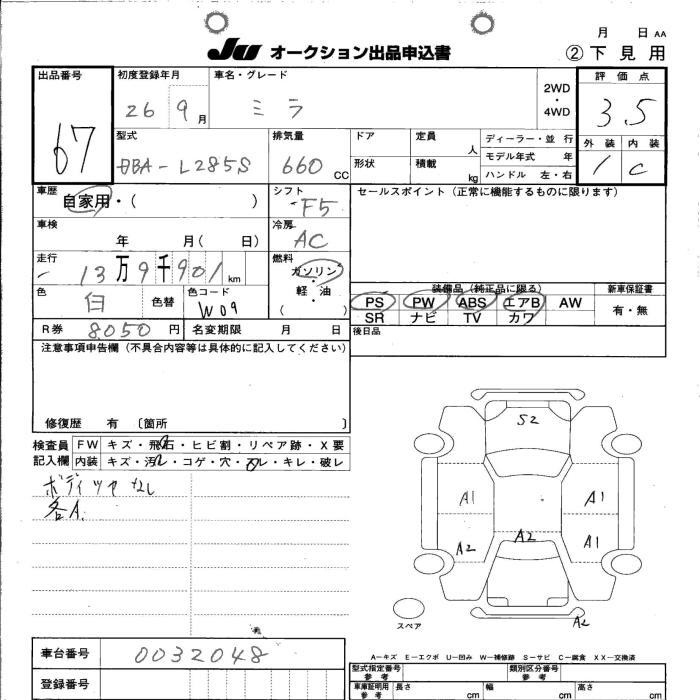 月 日 AA
JU オークション出品申込書 ②下見用
出品番号 67
初度登録年月 26 9月
車名・グレード ミラ
2WD・4WD
評価点 3.5
型式 DBA-L285S
排気量 660 CC
ドア 形状
定員 人
積載 kg
ディーラー・並行
モデル年式 年
ハンドル 左・右
外装 内装
1 C
車歴 自家用・( )
シフト F5
セールスポイント(正常に機能するものに限ります)
車検 年 月( 日)
冷房 AC
走行 13万9千901km
燃料 ガソリン・軽・油 ( )
色 白 色替
色コード W09
装備品(純正品に限る)
PS PW ABS エアB AW
SR ナビ TV カワ
新車保証書
有・無
R券 8050円 名変期限 月 日
後日品
注意事項申告欄(不具合内容等は具体的に記入してください)
修復歴 有 〔箇所 〕
検査員記入欄
FW キズ・飛石・ヒビ割・リペア跡・X要
内装 キズ・汚れ・コゲ・穴・スレ・キレ・破レ
ボディツヤなし
各A.
S2
A1 A1
A2 A2 A1
スペア A2
A-キズ E-エクボ U-凹み W-補修跡 S-サビ C-腐食 XX-交換済
車台番号 0032048
登録番号
型式指定番号 参考
類別区分番号 参考
車庫証明用 参考 長さ cm 幅 cm 高さ cm